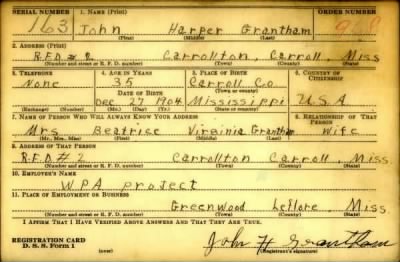 SERIAL NUMBER 1. NAME (Print) ORDER NUMBER
163 John Harper Grantham
(First) (Middle) (Last)
2. ADDRESS (Print)
R.F.D # 2 Carrollton, Carroll, Miss
(Number and street or R. F. D. number) (Town) (County) (State)
3. TELEPHONE 4. AGE IN YEARS 5. PLACE OF BIRTH 6. COUNTRY OF CITIZENSHIP
None 35 Carroll Co
DATE OF BIRTH (Town or county)
Dec 27 1904 Mississippi U.S.A.
(Exchange) (Number) (Mo.) (Day) (Yr.) (State or country)
7. NAME OF PERSON WHO WILL ALWAYS KNOW YOUR ADDRESS 8. RELATIONSHIP OF THAT PERSON
Mrs Beatrice Virginia Grantham Wife
(Mr., Mrs., Miss) (First) (Middle) (Last)
9. ADDRESS OF THAT PERSON
R.F.D # 2 Carrollton Carroll, Miss
(Number and street or R. F. D. number) (Town) (County) (State)
10. EMPLOYER'S NAME
WPA project
11. PLACE OF EMPLOYMENT OR BUSINESS
Greenwood Leflore, Miss
(Number and street or R. F. D. number) (Town) (County) (State)
I AFFIRM THAT I HAVE VERIFIED ABOVE ANSWERS AND THAT THEY ARE TRUE.
REGISTRATION CARD
D. S. S. Form 1 (over) John H Grantham
(Registrant's signature)